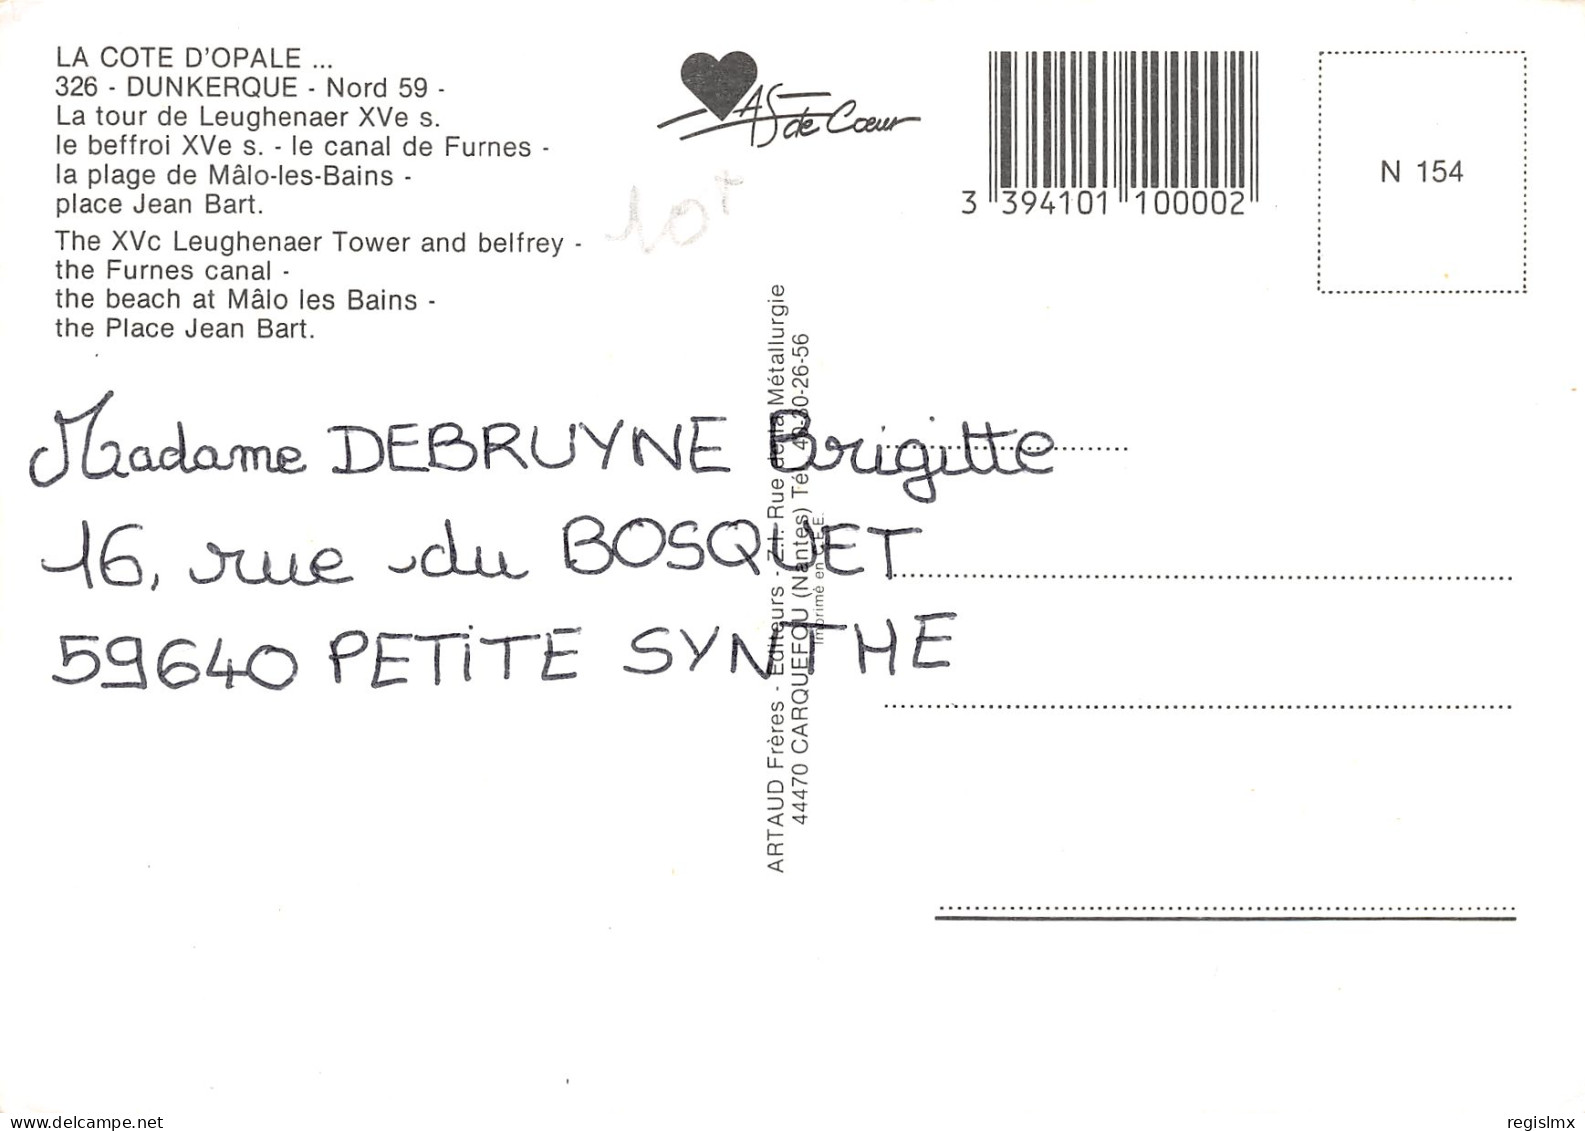 LA COTE D'OPALE ...
326 - DUNKERQUE - Nord 59 -
La tour de Leughenaer XVe s.
le beffroi XVe s. - le canal de Furnes -
la plage de Mâlo-les-Bains -
place Jean Bart.
The XVc Leughenaer Tower and belfrey -
the Furnes canal -
the beach at Mâlo les Bains -
the Place Jean Bart.
AS de Cœur
10+
3 394101 100002
N 154
ARTAUD Frères - Editeurs - Z.I. Rue de la Métallurgie
44470 CARQUEFOU (Nantes) Tél. 40-30-26-56
Imprimé en C.E.E.
Madame DEBRUYNE Brigitte
16, rue du BOSQUET
59640 PETITE SYNTHE
www.delcampe.net
regislmx